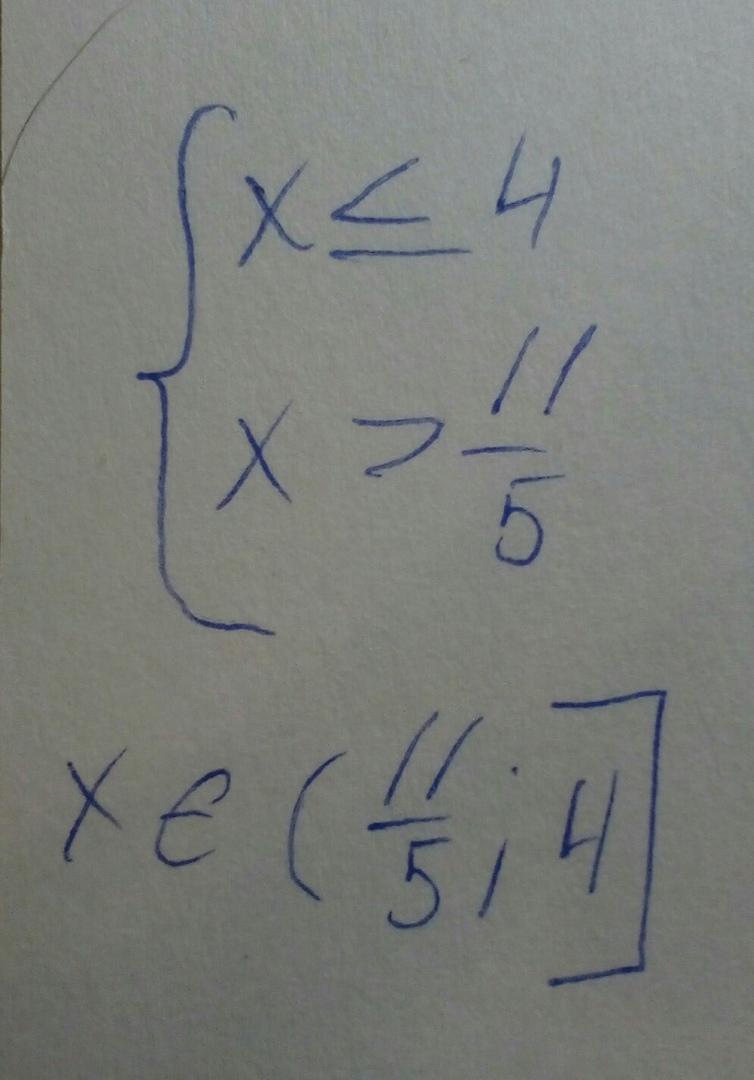 { x ≤ 4
x > 11/5
x ∈ (11/5; 4]